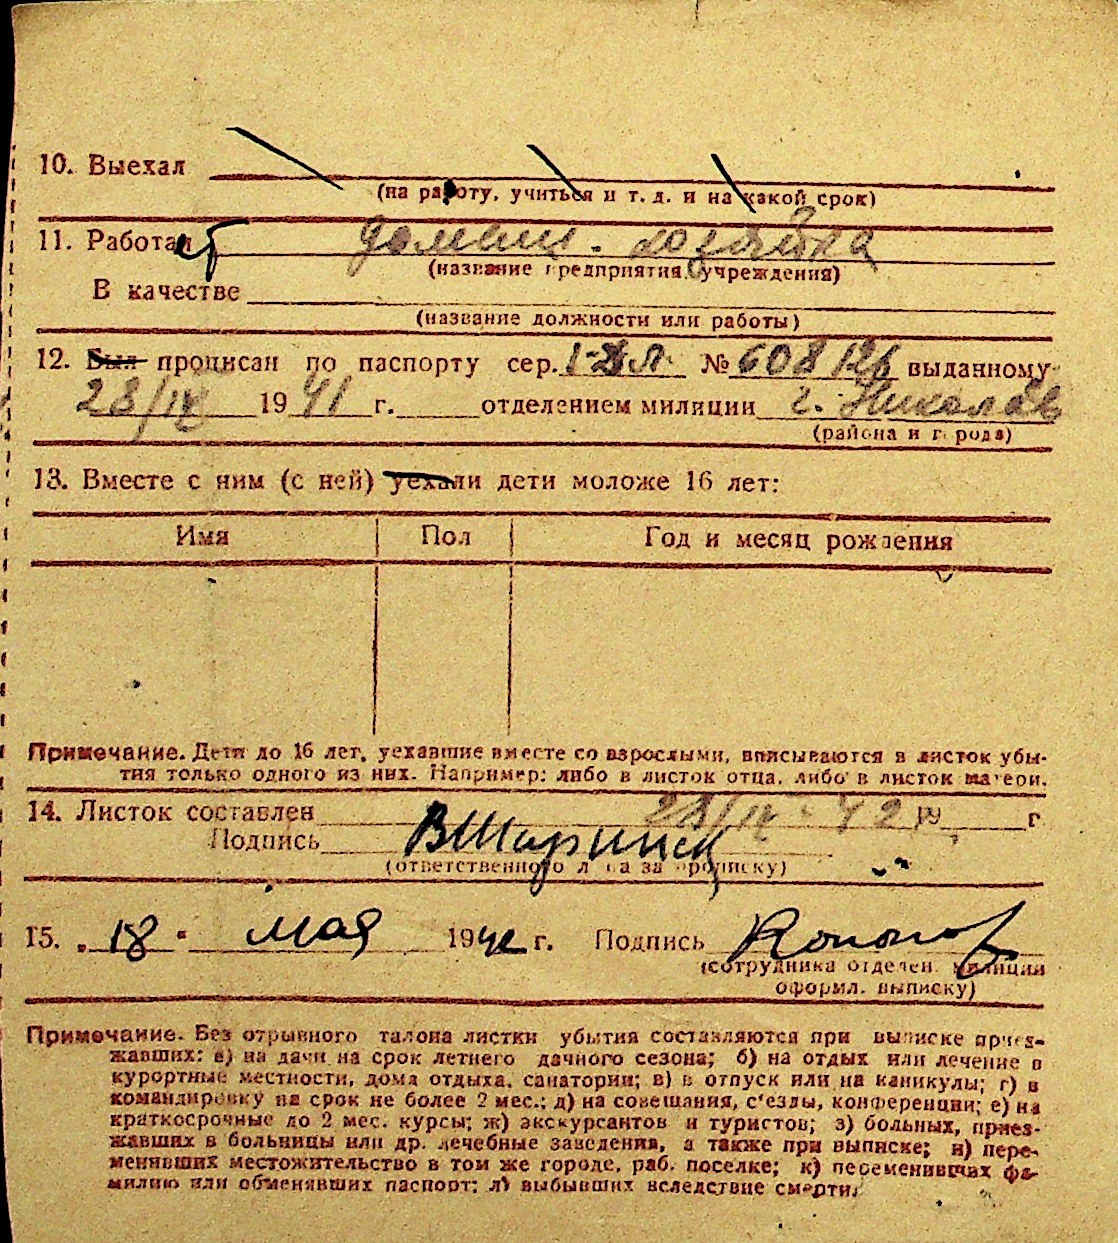 10. Выехал
(на работу, учиться и т. д. и на какой срок)
11. Работает домашн. хозяйка
(название предприятия, учреждения)
В качестве
(название должности или работы)
12. Был прописан по паспорту сер. № 608126 выданному
28/IV 1941 г. отделением милиции г. Николаев
(района и города)
13. Вместе с ним (с ней) уехали дети моложе 16 лет:
Имя Пол Год и месяц рождения
Примечание. Дети до 16 лет, уехавшие вместе со взрослыми, вписываются в листок убы-
тия только одного из них. Например: либо в листок отца, либо в листок матери.
14. Листок составлен 28/IV - 42 19 г
Подпись
(ответственного лица за прописку)
15. „18" мая 1942 г. Подпись
(сотрудника отделен. милиции
оформл. выписку)
Примечание. Без отрывного талона листки убытия составляются при выписке приез-
жавших: а) на дачи на срок летнего дачного сезона; б) на отдых или лечение в
курортные местности, дома отдыха, санатории; в) в отпуск или на каникулы; г) в
командировку на срок не более 2 мес.; д) на совещания, с'езды, конференции; е) на
краткосрочные до 2 мес. курсы; ж) экскурсантов и туристов; з) больных, приез-
жавших в больницы или др. лечебные заведения, а также при выписке; и) пере-
менявших местожительство в том же городе, раб. поселке; к) переменивших фа-
милию или обменявших паспорт; л) выбывших вследствие смерти.